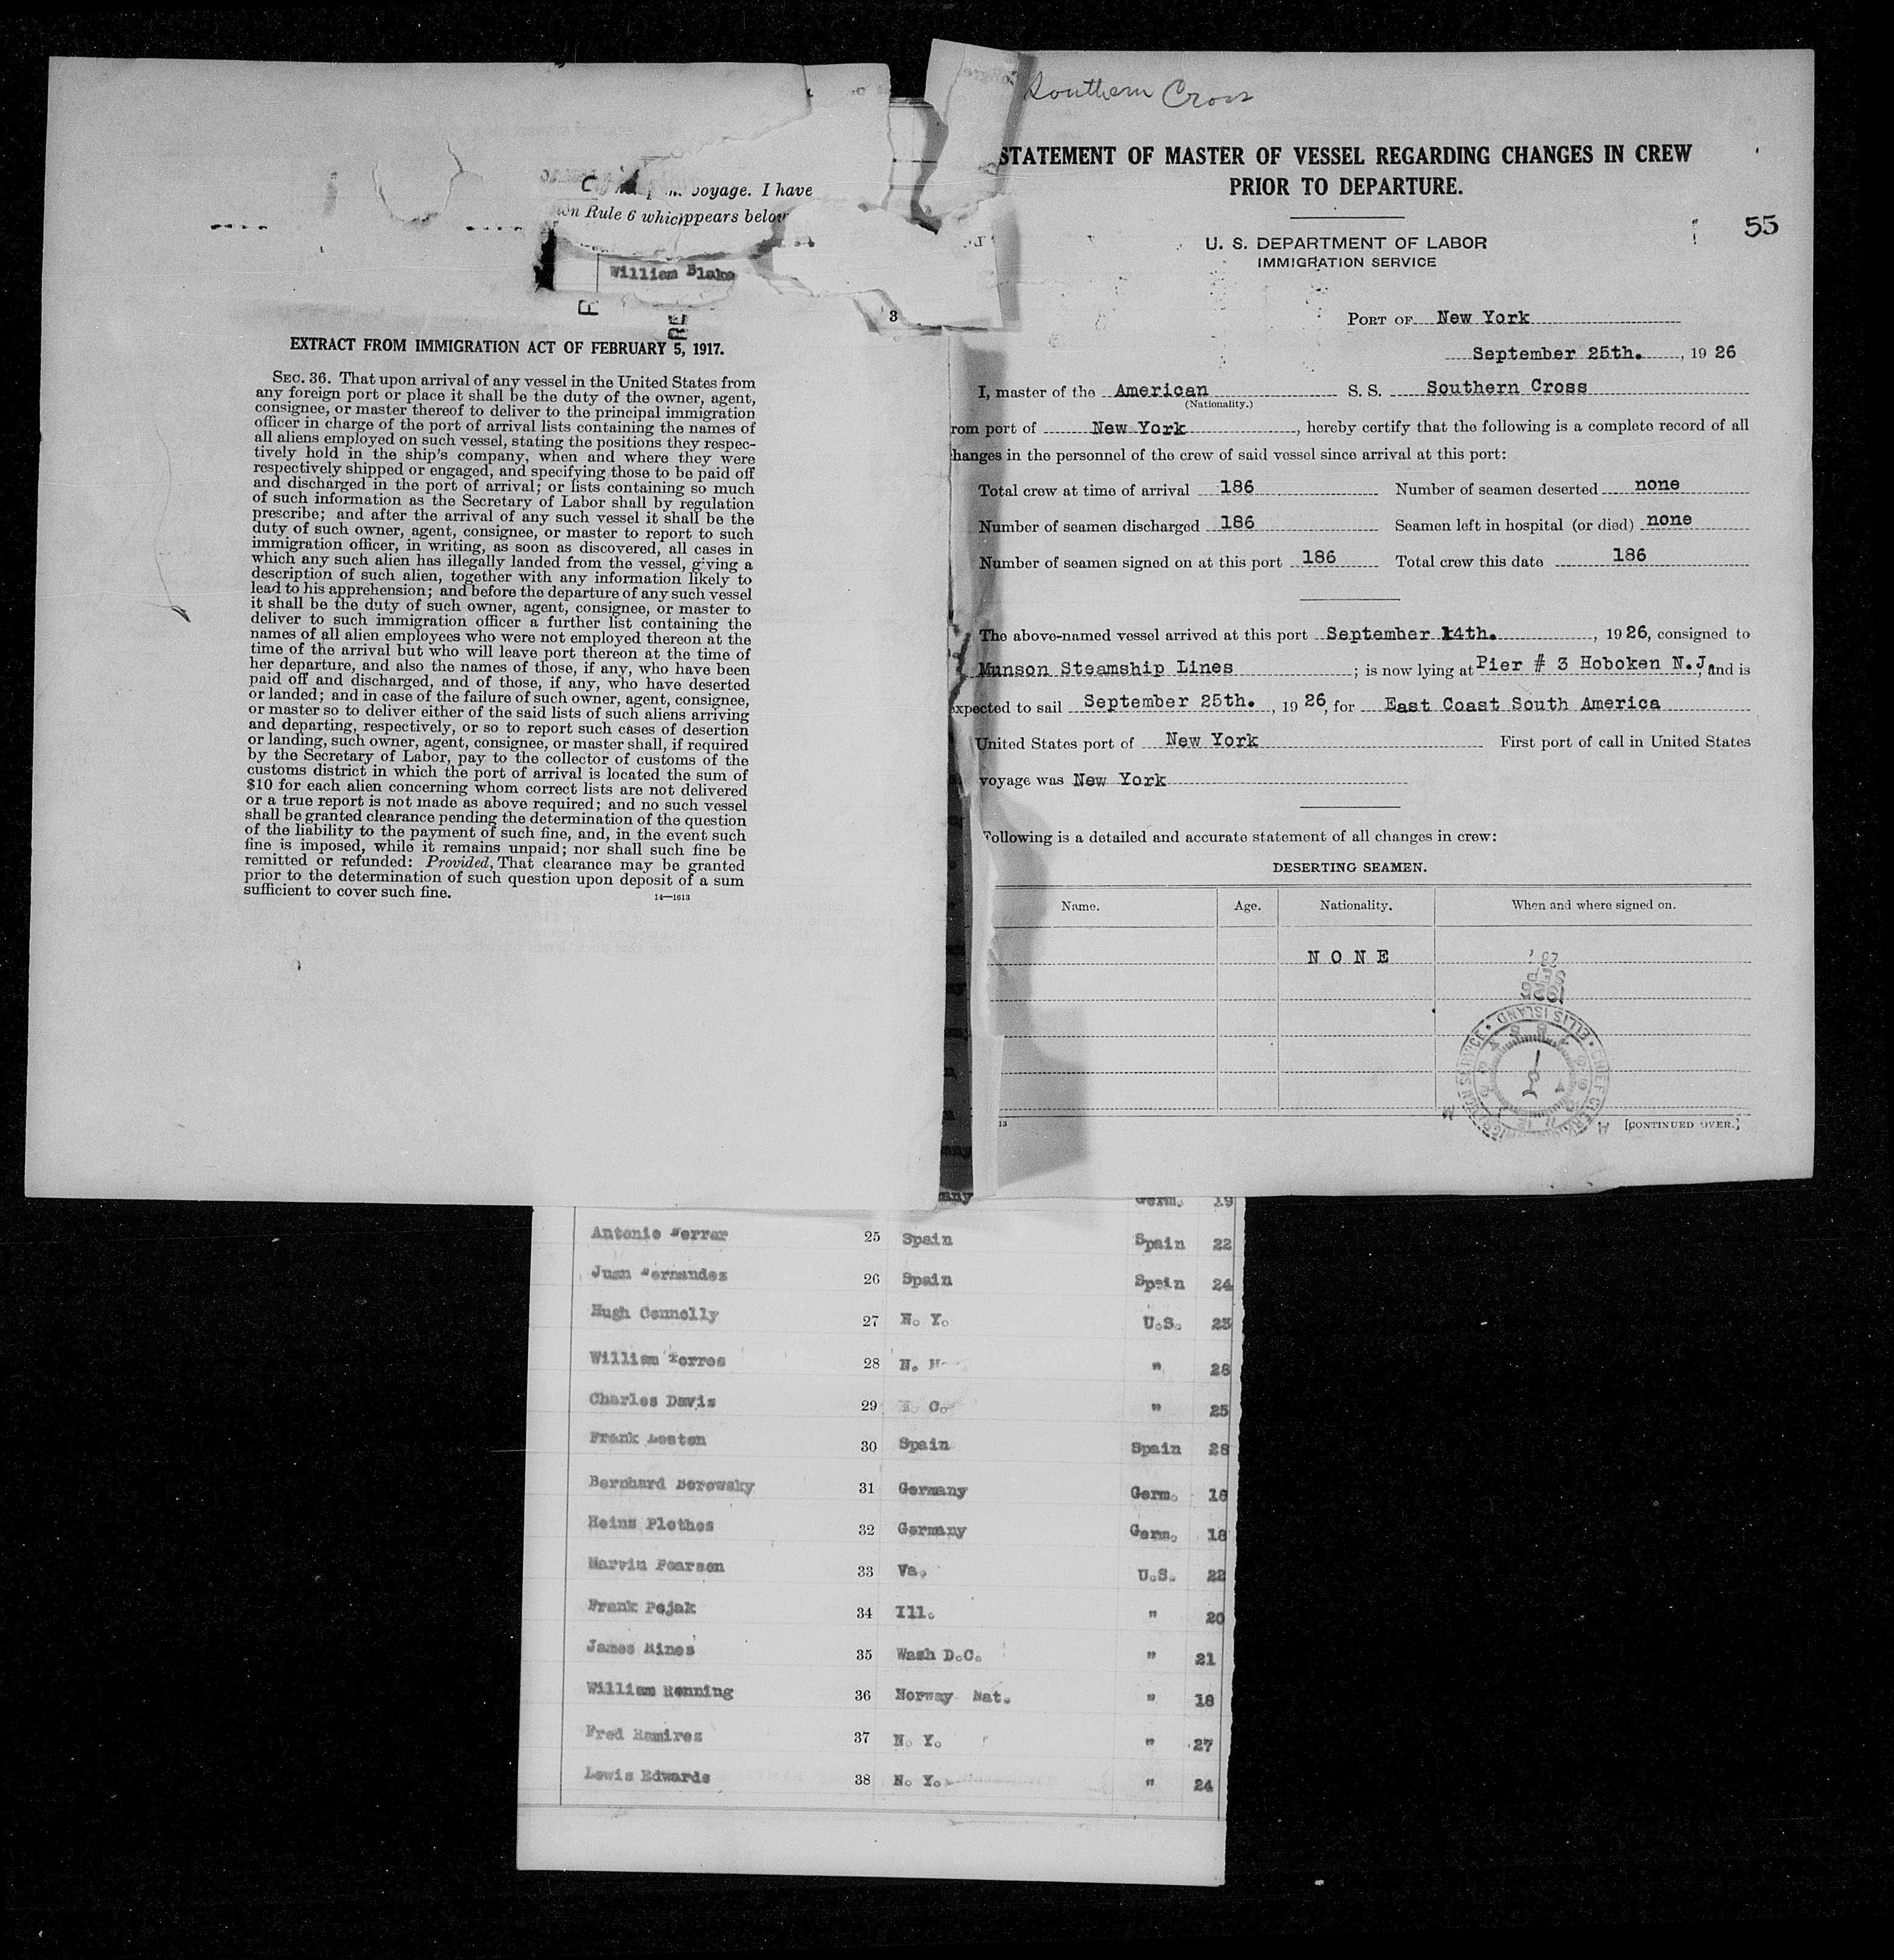 voyage. I have
Rule 6 which appears below
William Blake
3
EXTRACT FROM IMMIGRATION ACT OF FEBRUARY 5, 1917.
SEC. 36. That upon arrival of any vessel in the United States from
any foreign port or place it shall be the duty of the owner, agent,
consignee, or master thereof to deliver to the principal immigration
officer in charge of the port of arrival lists containing the names of
all aliens employed on such vessel, stating the positions they respec-
tively hold in the ship's company, when and where they were
respectively shipped or engaged, and specifying those to be paid off
and discharged in the port of arrival; or lists containing so much
of such information as the Secretary of Labor shall by regulation
prescribe; and after the arrival of any such vessel it shall be the
duty of such owner, agent, consignee, or master to report to such
immigration officer, in writing, as soon as discovered, all cases in
which any such alien has illegally landed from the vessel, giving a
description of such alien, together with any information likely to
lead to his apprehension; and before the departure of any such vessel
it shall be the duty of such owner, agent, consignee, or master to
deliver to such immigration officer a further list containing the
names of all alien employees who were not employed thereon at the
time of the arrival but who will leave port thereon at the time of
her departure, and also the names of those, if any, who have been
paid off and discharged, and of those, if any, who have deserted
or landed; and in case of the failure of such owner, agent, consignee,
or master so to deliver either of the said lists of such aliens arriving
and departing, respectively, or so to report such cases of desertion
or landing, such owner, agent, consignee, or master shall, if required
by the Secretary of Labor, pay to the collector of customs of the
customs district in which the port of arrival is located the sum of
$10 for each alien concerning whom correct lists are not delivered
or a true report is not made as above required; and no such vessel
shall be granted clearance pending the determination of the question
of the liability to the payment of such fine, and, in the event such
fine is imposed, while it remains unpaid; nor shall such fine be
remitted or refunded: Provided, That clearance may be granted
prior to the determination of such question upon deposit of a sum
sufficient to cover such fine.
14—1613
Southern Cross
STATEMENT OF MASTER OF VESSEL REGARDING CHANGES IN CREW
PRIOR TO DEPARTURE.
55
U. S. DEPARTMENT OF LABOR
IMMIGRATION SERVICE
PORT OF New York
September 25th., 19 26
I, master of the American S. S. Southern Cross
(Nationality.)
rom port of New York, hereby certify that the following is a complete record of all
hanges in the personnel of the crew of said vessel since arrival at this port:
Total crew at time of arrival 186 Number of seamen deserted none
Number of seamen discharged 186 Seamen left in hospital (or died) none
Number of seamen signed on at this port 186 Total crew this date 186
The above-named vessel arrived at this port September 14th., 19 26, consigned to
Munson Steamship Lines; is now lying at Pier # 3 Hoboken N.J. and is
expected to sail September 25th., 19 26, for East Coast South America
United States port of New York First port of call in United States
voyage was New York
Following is a detailed and accurate statement of all changes in crew:
DESERTING SEAMEN.
Name. Age. Nationality. When and where signed on.
NONE
ELLIS ISLAND CHIEF CLERK IMMIGRATION SERVICE
13
[CONTINUED OVER.]
Germ. 19
Antonio Ferrar 25 Spain Spain 22
Juan Fernandez 26 Spain Spain 24
Hugh Connolly 27 N. Y. U.S. 23
William Torres 28 N. " 28
Charles Davis 29 C. " 25
Frank 30 Spain Spain 28
Bernhard Borowsky 31 Germany Germ. 18
Heinz Plothos 32 Germany Germ. 18
Marvin Pearson 33 Va. U.S. 22
Frank Pejak 34 Ill. " 20
James Hines 35 Wash D.C. " 21
William Henning 36 Norway Nat. " 18
Fred Ramirez 37 N. Y. " 27
Lewis Edwards 38 N. Y. " 24